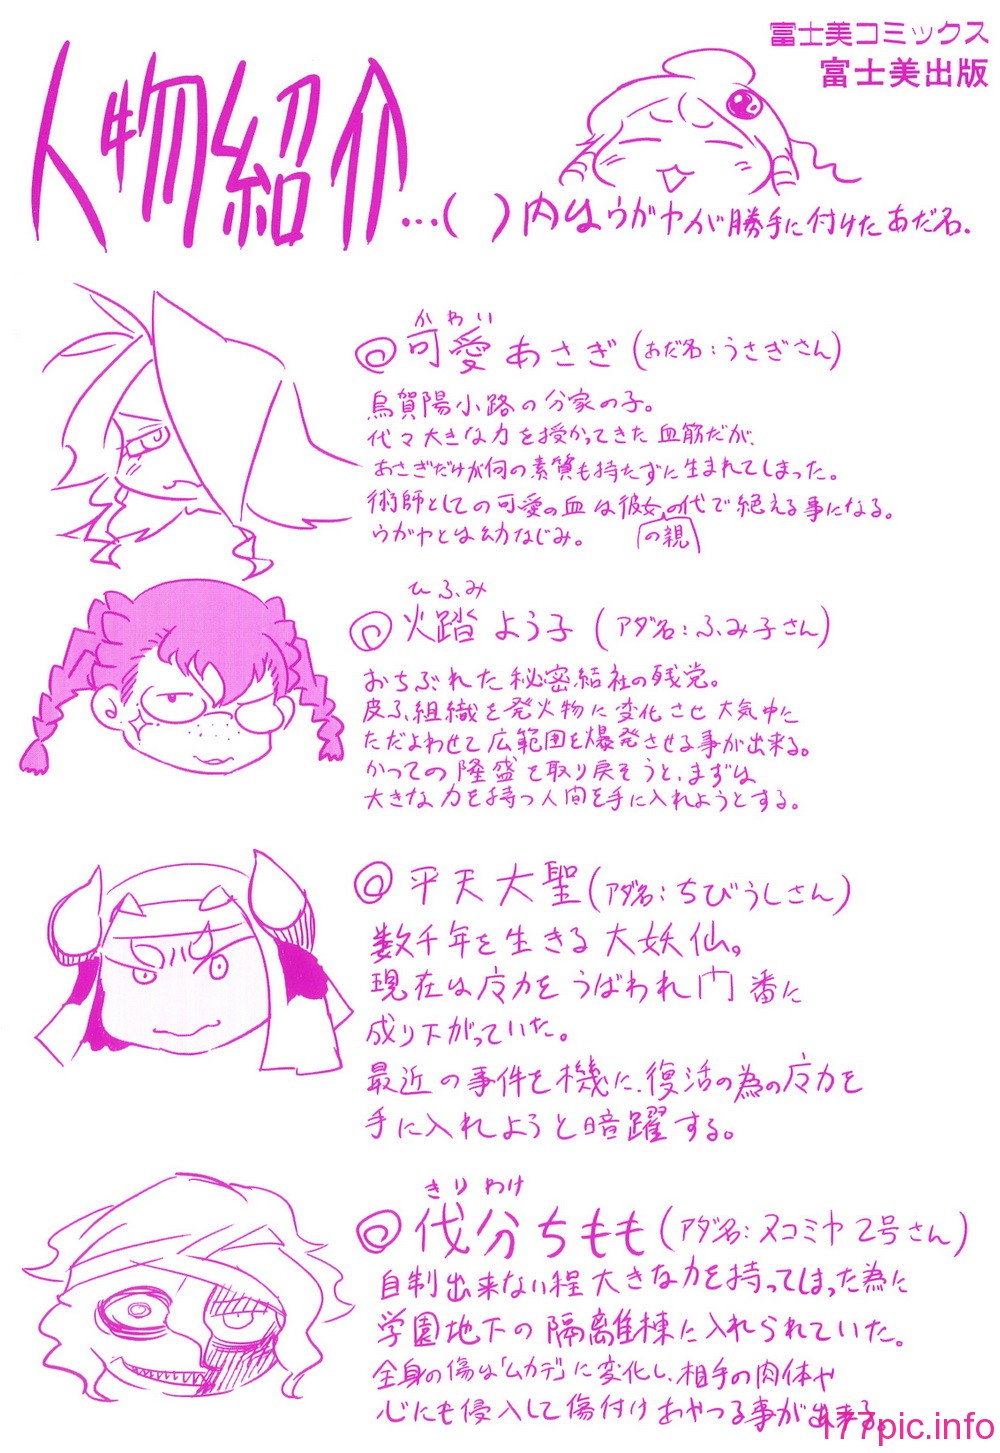 富士美コミックス
富士美出版
人物紹介…( )内はウガヤが勝手に付けたあだ名.
かわい
@可愛あさぎ(あだ名:うさぎさん)
烏賀陽小路の分家の子。
代々大きな力を授かってきた血筋だが、
あさぎだけが何の素質も持たずに生まれてしまった。
術師としての可愛の血は彼女の代で絶える事になる。
の親
ウガヤとは幼なじみ。
ひふみ
@火踏よう子(アダ名:ふみ子さん)
おちぶれた秘密結社の残党。
皮ふ組織を発火物に変化させ大気中に
ただよわせて広範囲を爆発させる事が出来る。
かつての隆盛を取り戻そうと、まずは
大きな力を持つ人間を手に入れようとする。
@平天大聖(アダ名:ちびうしさん)
数千年を生きる大妖仙。
現在は広力をうばわれ門番に
成り下がっていた。
最近の事件を機に、復活の為の広力を
手に入れようと暗躍する。
きりわけ
@伐分ちもも(アダ名:ヌコミヤ2号さん)
自制出来ない程大きな力を持ってしまった為に
学園地下の隔離棟に入れられていた。
全身の傷は「ムカデ」に変化し、相手の肉体や
心にも侵入して傷付けあやつる事が出来る。
177pic.info